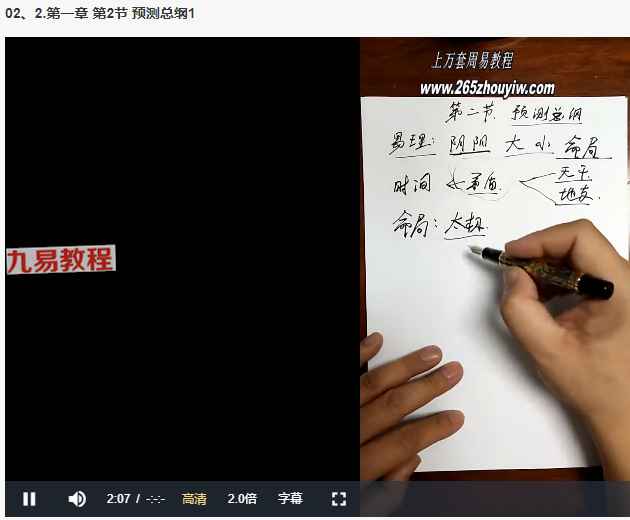 02、2.第一章 第2节 预测总纲1
上万套周易教程
www.265zhouyiw.com
第二节、预测总纲
易理：阴阳 大小 命局
时间 矛盾 天干
地支
命局：太极
九易教程
2:07 / -:-:- 高清 2.0倍 字幕